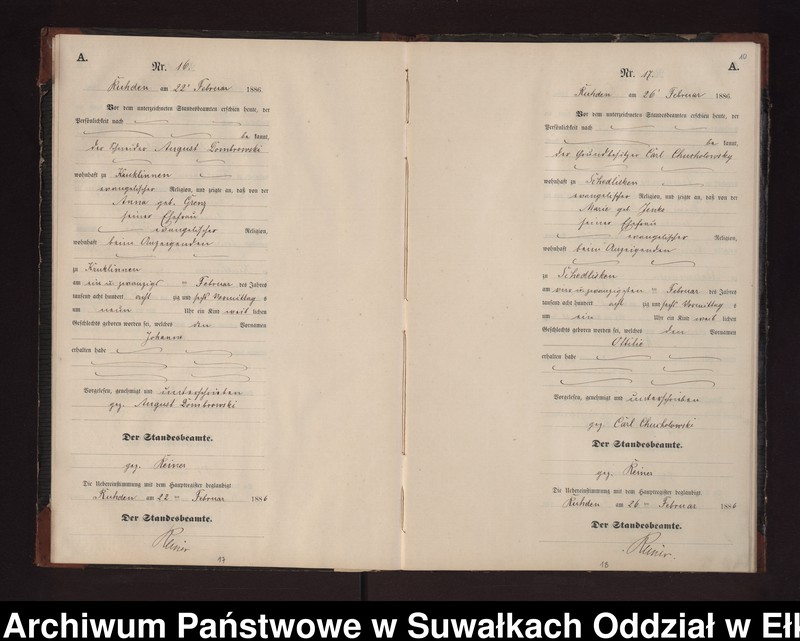 A.
Nr. 16.
Kuhden am 22ᵗ Februar 1886.
Vor dem unterzeichneten Standesbeamten erschien heute, der
Persönlichkeit nach
be kannt,
der Schneider August Dombrowski
wohnhaft zu Kruklinnen
evangelischer Religion, und zeigte an, daß von der
Anna geb. Grenz
seiner Ehefrau
evangelischer Religion,
wohnhaft beim Anzeigenden
zu Kruklinnen
am ein u. zwanzigst ten Februar des Jahres
tausend acht hundert acht zig und sechs Vormittag s
um neun Uhr ein Kind weib lichen
Geschlechts geboren worden sei, welches den Vornamen
Johanne
erhalten habe
Vorgelesen, genehmigt und unterschrieben
gez. August Dombrowski
Der Standesbeamte.
gez. Reiner
Die Uebereinstimmung mit dem Hauptregister beglaubigt
Kuhden am 22 ten Februar 1886
Der Standesbeamte.
Reiner
17
10
A.
Nr. 17.
Kuhden am 26ᵗ Februar 1886.
Vor dem unterzeichneten Standesbeamten erschien heute, der
Persönlichkeit nach
be kannt,
der Grundbesitzer Carl Chucholowsky
wohnhaft zu Schedlisken
evangelischer Religion, und zeigte an, daß von der
Marie geb.
seiner Ehefrau
evangelischer Religion,
wohnhaft beim Anzeigenden
zu Schedlisken
am zwanzigsten ten Februar des Jahres
tausend acht hundert acht zig und sechs Vormittag s
um ein Uhr ein Kind weib lichen
Geschlechts geboren worden sei, welches den Vornamen
Ottilie
erhalten habe
Vorgelesen, genehmigt und unterschrieben
gez. Carl Chucholowski
Der Standesbeamte.
gez. Reiner
Die Uebereinstimmung mit dem Hauptregister beglaubigt
Kuhden am 26 ten Februar 1886
Der Standesbeamte.
Reiner.
18
Archiwum Państwowe w Suwałkach Oddział w Eł